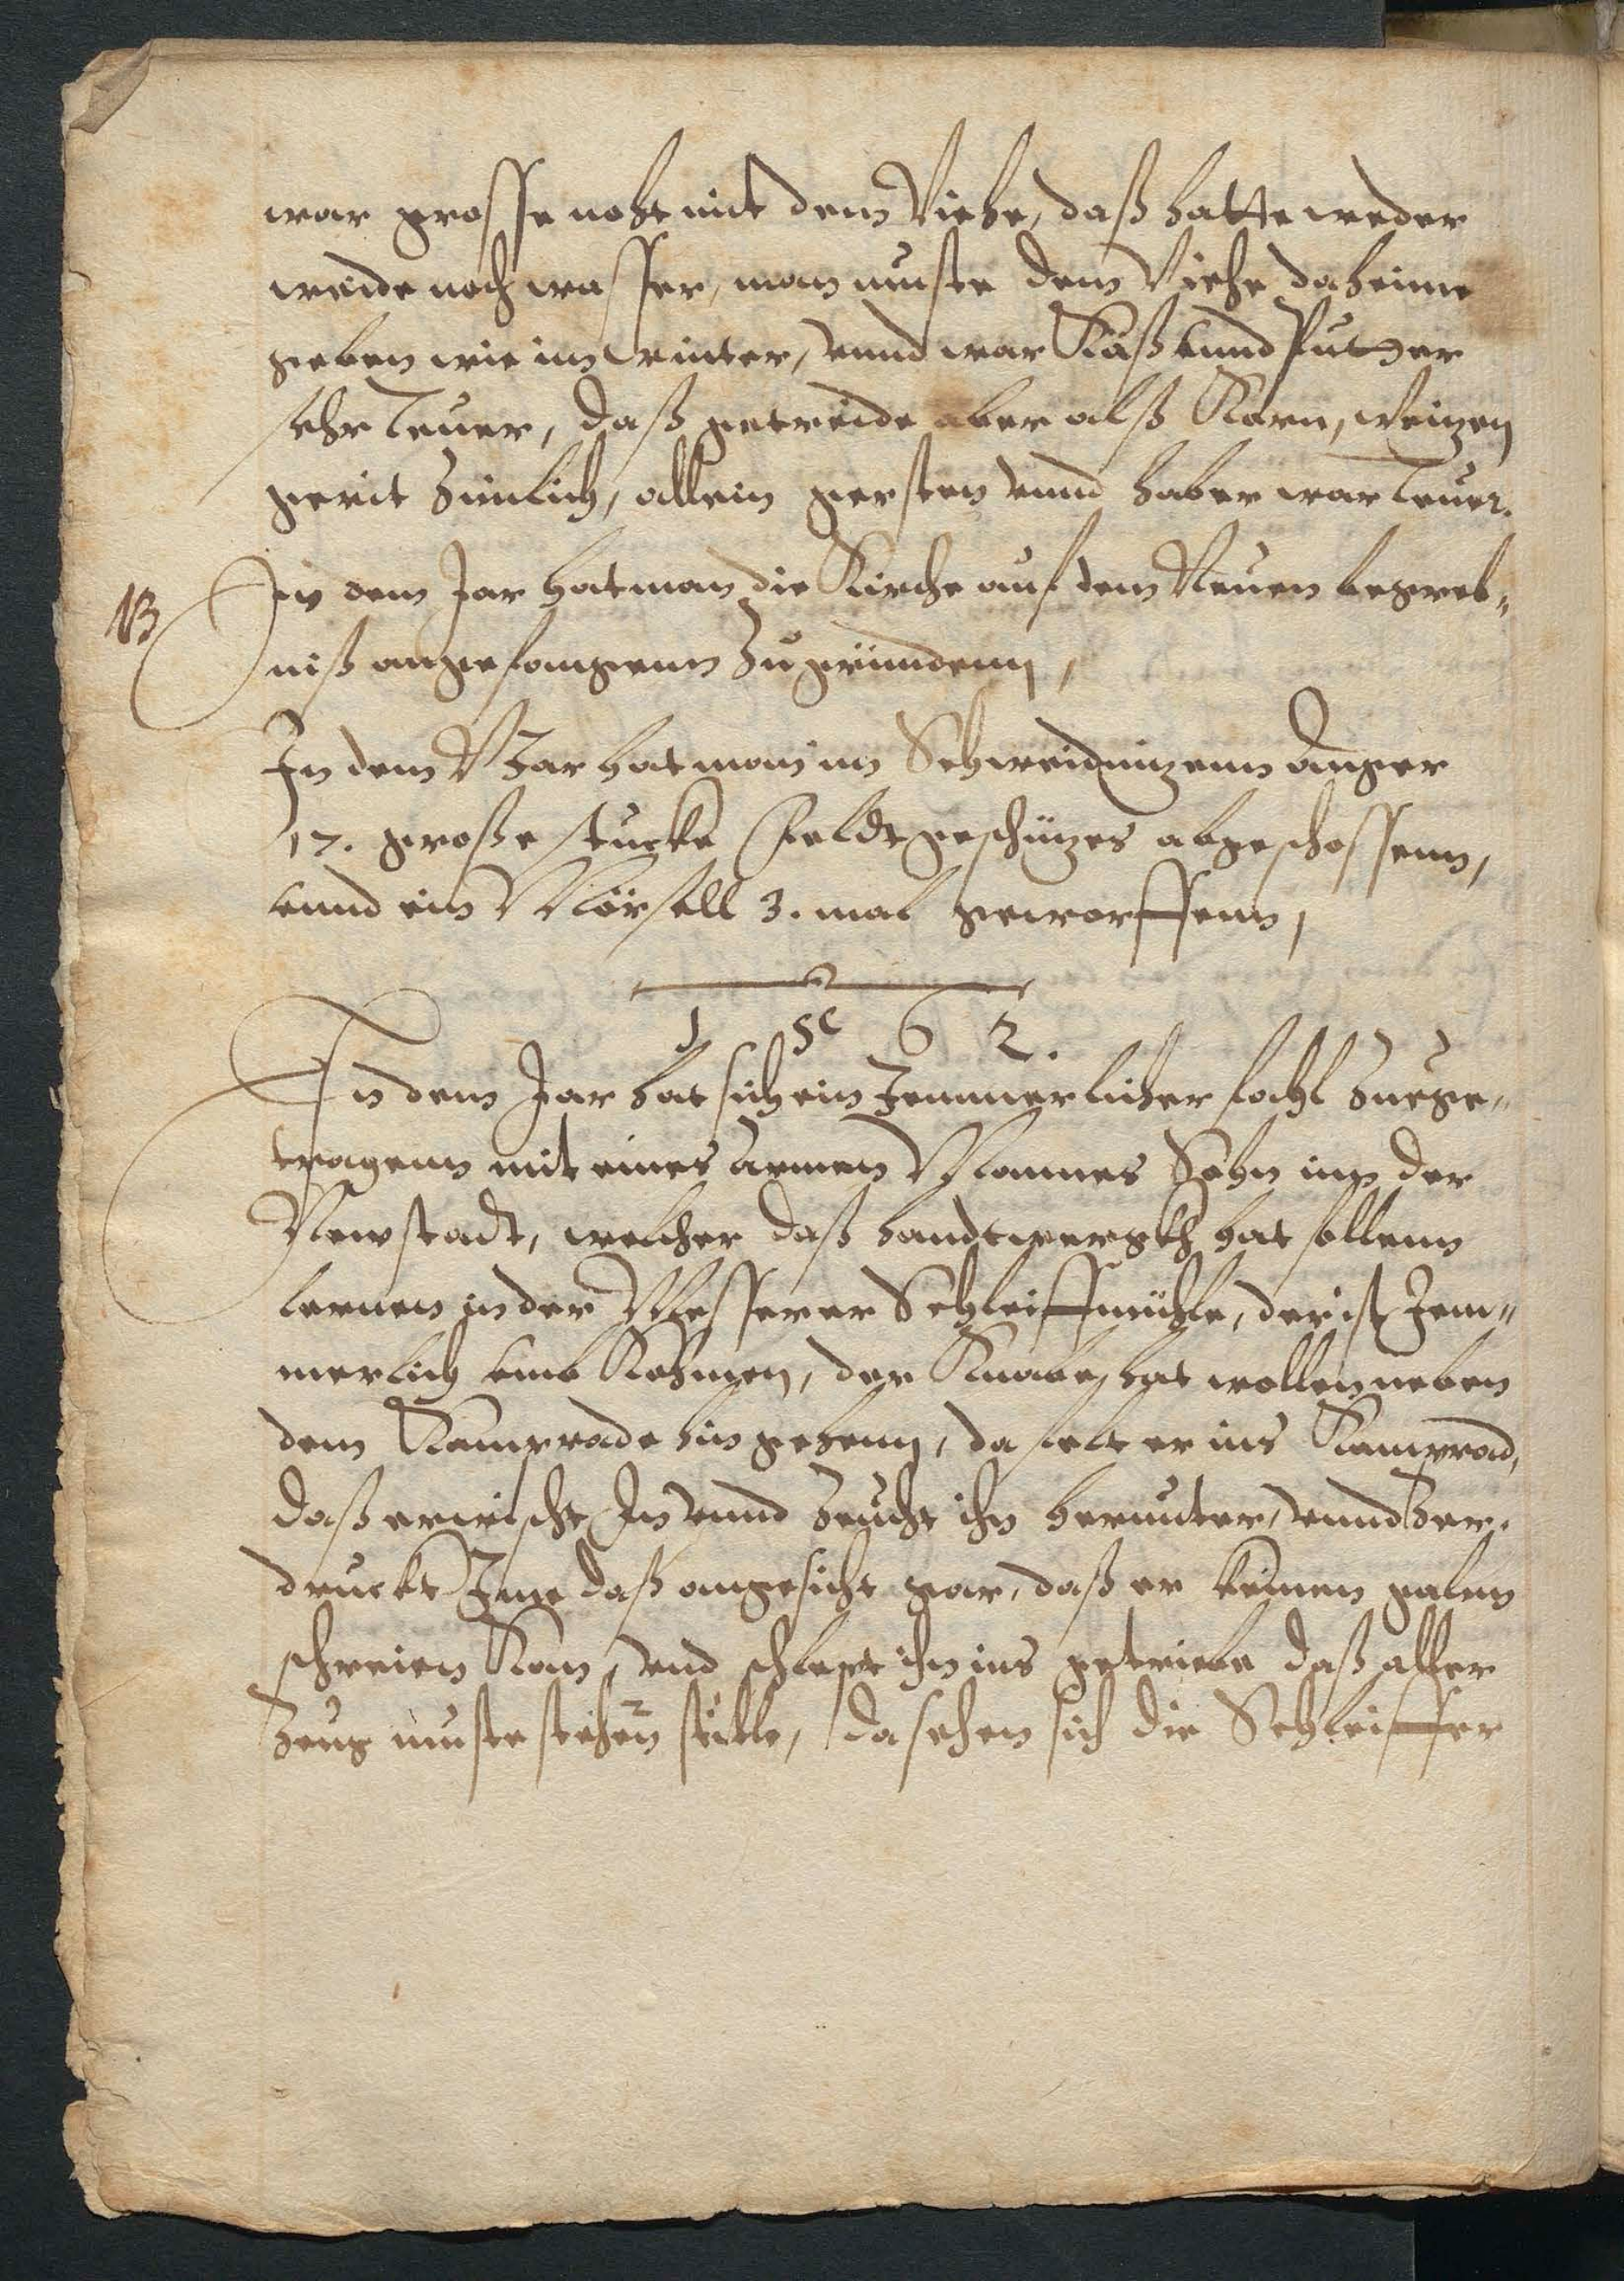 war grosse noht mit dem Viehe, daß hatte weder
weide noch wasser, man muste dem Viehe daheime
geben wie im winter, vnnd war Käß vnnd Putter
sehr teuer, daß getreide aber alß Korn, Weizen
geriet zimlich, allein gersten vnnd haber war teuer.
NB
In dem Jar hat man die Kirche auf dem Neuen begreb„
niß angefangenn zu gründenn,
In dem Jar hat man im Schweidnizenn Anger
17. große stucke Feldtgeschüzes abgeschossenn,
vnnd ein Mörsell 3. mal geworffenn,
1 5 6 2.
In dem Jar hat sich ein Jemmerlicher fahl zuege„
tragenn mit eines Armen Mannes Sohn inn der
Newstadt, welcher daß handtwergkh hat sollenn
lernen in der Messerer Schleiffmühle, der ist Jem„
merlich vmb Kohmen, der Knabe hat wollen neben
dem Kamprade hin gehenn, da felt er ins Kamprad,
daß erwischt In vnnd zeucht ihn herunter, vnnd zer„
druckt Ime daß angesicht gar, daß er keinen
schreien Kan, vnd schlept ihn ins getriebe daß alles
Zeug muste stehen stille, da sehen sich die Schleiffer